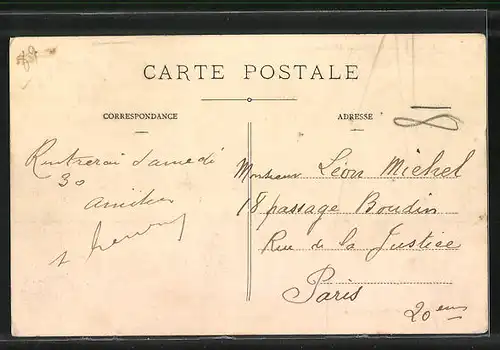 CARTE POSTALE
CORRESPONDANCE
ADRESSE
Rentrerai Samedi
30
Monsieur Léon Michel
18 passage Boudin
Rue de la Justice
Paris
20 em